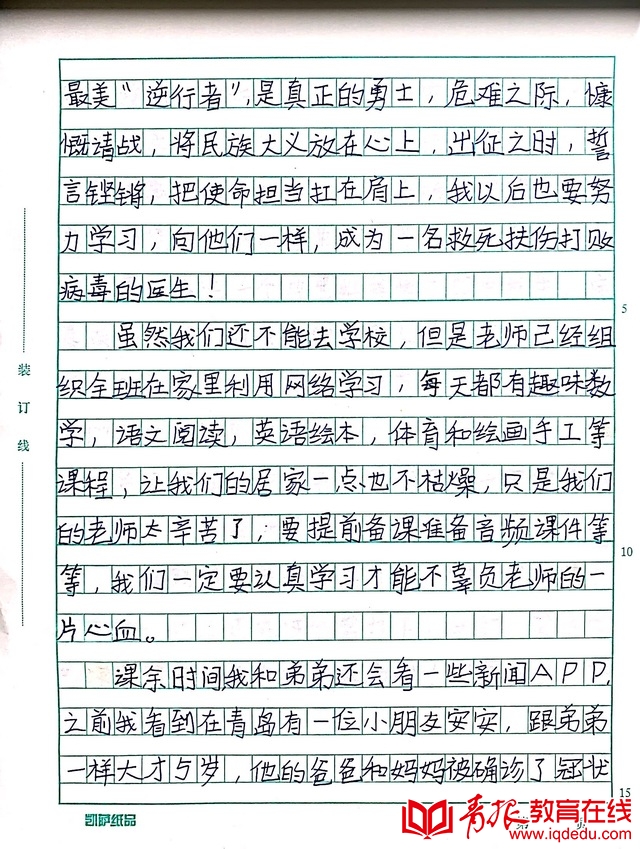 最美“逆行者”,是真正的勇士，危难之际，慷
慨请战，将民族大义放在心上，出征之时，誓
言铿锵，把使命担当扛在肩上，我以后也要努
力学习，向他们一样，成为一名救死扶伤打败
病毒的医生！
5
虽然我们还不能去学校，但是老师已经组
织全班在家里利用网络学习，每天都有趣味数
学，语文阅读，英语绘本，体育和绘画手工等
课程，让我们的居家一点也不枯燥，只是我们
的老师太辛苦了，要提前备课准备音频课件等
10
等，我们一定要认真学习才能不辜负老师的一
片心血。
课余时间我和弟弟还会看一些新闻APP,
之前我看到在青岛有一位小朋友安安，跟弟弟
一样大才5岁，他的爸爸和妈妈被确诊了冠状
15
装订线
凯萨纸品
青报教育在线
www.iqdedu.com